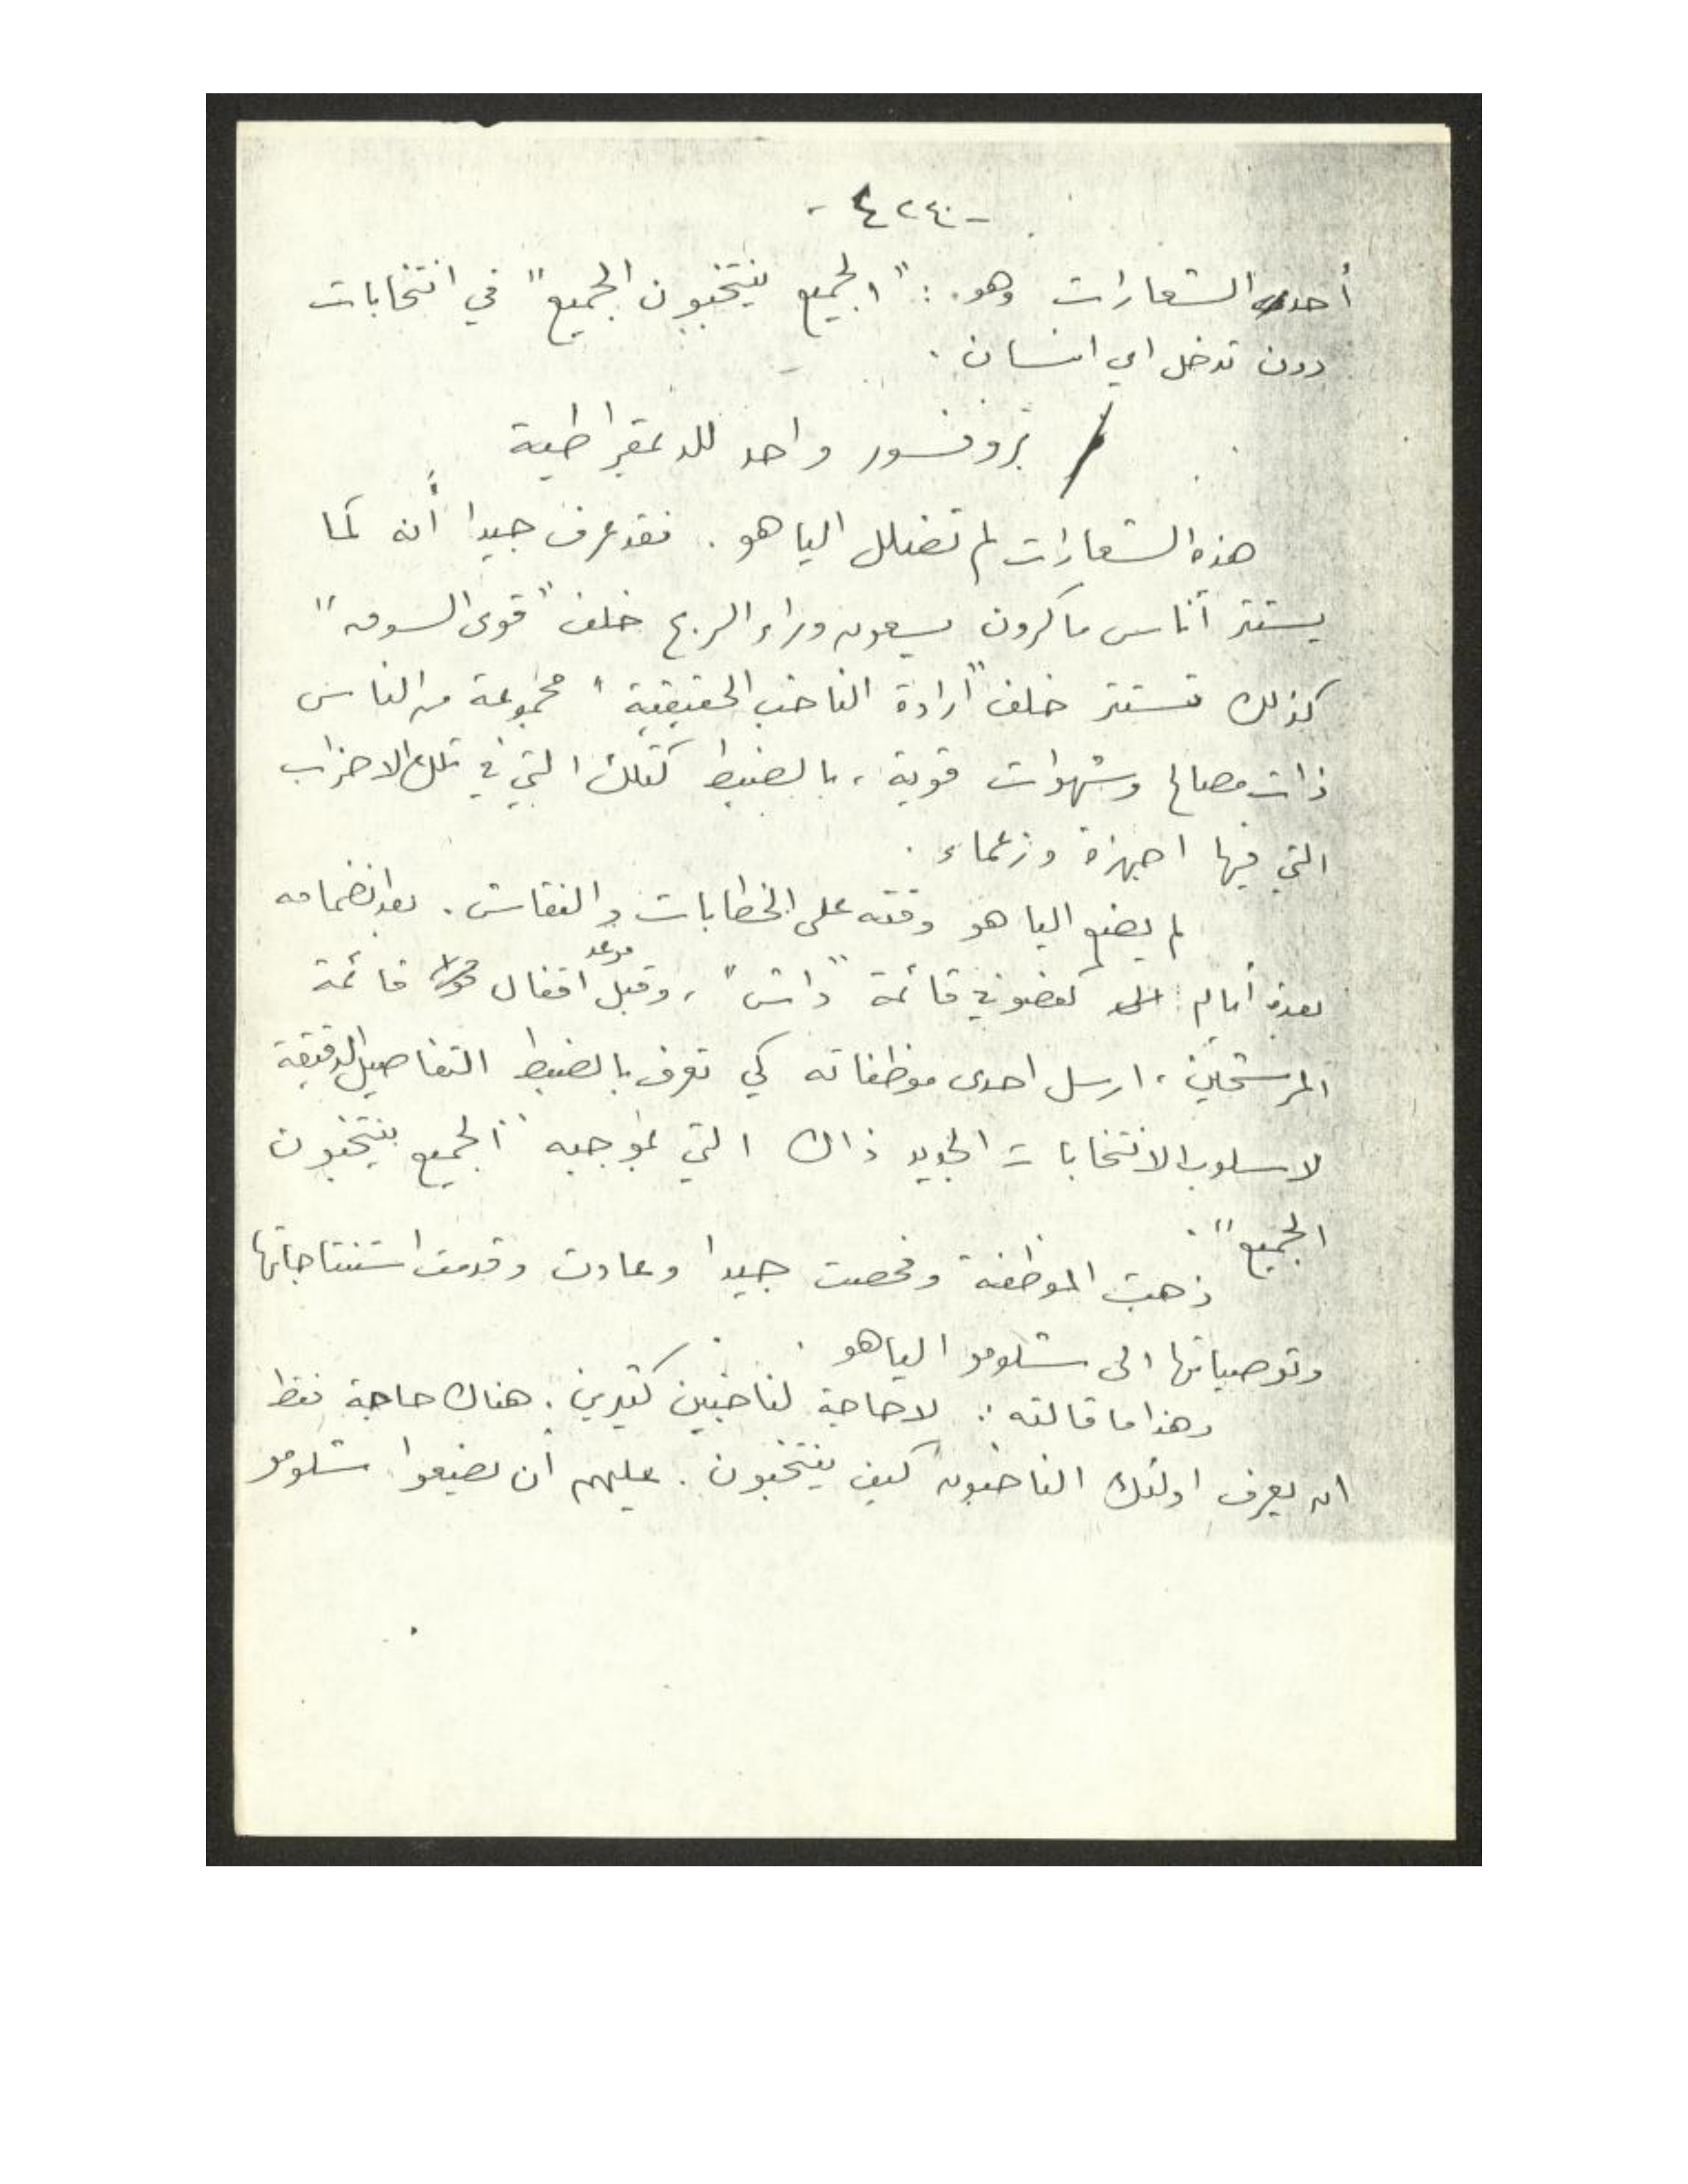 أحد الشعارات وهو : "الجميع ينتخبون الجميع" في انتخابات
دون تدخل اي انسان .
بروفسور واحد للديمقراطية
هذه الشعارات لم تضلل الياهو . فقد عرف جيدا أنه كما
يستتر أناس ماكرون يسعون وراء الربح خلف "قوى السوق"
كذلك تستتر خلف "ارادة الناخب الحقيقية" مجموعة من الناس
ذات مصالح وشهوات قوية ، بالضبط كتلك التي في تلك الاحزاب
التي فيها اجهزة وزعماء .
لم يضع الياهو وقته على الخطابات والنقاش . بعد انضمامه
بعدة أيام كعضو في قائمة "داش" ، وقبل موعد اقفال قائمة
المرشحين ، ارسل احدى موظفاته كي تعرف بالضبط التفاصيل الدقيقة
لاسلوب الانتخابات الجديد ذاك التي بموجبه "الجميع ينتخبون
الجميع" .
ذهبت الموظفة وفحصت جيدا وعادت وقدمت استنتاجاتها
وتوصياتها الى شلومو الياهو .
وهذا ما قالته : لا حاجة لناخبين كثيرين . هناك حاجة فقط
ان يعرف اولئك الناخبون كيف ينتخبون . عليهم أن يضعوا شلومو